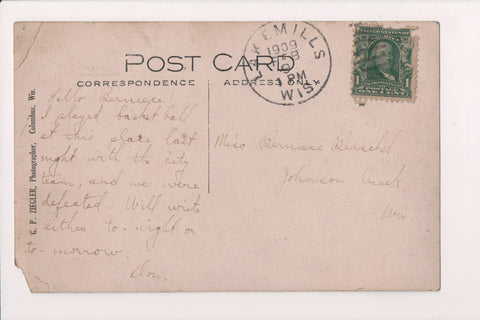 LAKE MILLS
1909
FEB
1 PM
WIS.
POST CARD
CORRESPONDENCE
ADDRESS ONLY
G. P. ZIEGLER, Photographer, Columbus, Wis.
Hello Berniece
I played basket ball
at this place last
night with the city
team, and we were
defeated. Will write
either to-night or
to-morrow.
Don.
Miss Berniece
Johnson Creek,
Wis.
1